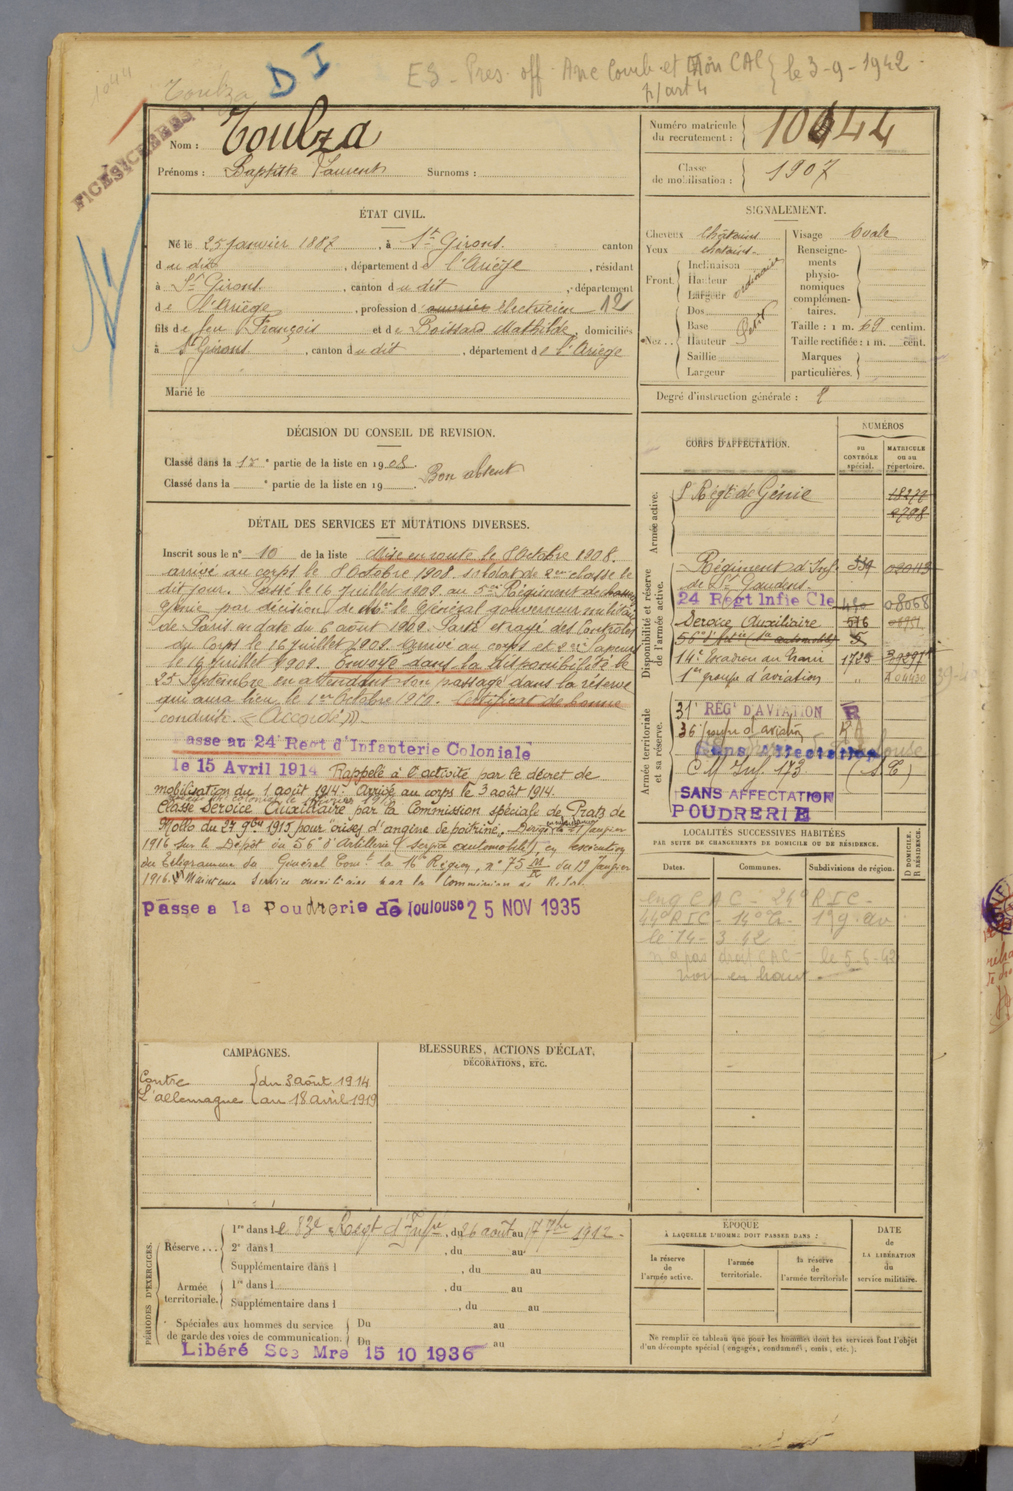 1044
Toulza
D I
E3 - Pres. off. Anc Comb. et Non CAC le 3-9-1942
art 4
FICES
Nom : Toulza
Prénoms : Baptiste Laurent Surnoms :
ÉTAT CIVIL.
Né le 25 janvier 1887, à St Girons canton
du dit, département de l'Ariège, résidant
à St Girons, canton du dit, département
de l'Ariège, profession d' ouvrier électricien 12
fils de feu François et de Mathilde, domiciliés
à St Girons, canton du dit, département de l'Ariège
Marié le
DÉCISION DU CONSEIL DE REVISION.
Classé dans la 1re partie de la liste en 1908. Bon absent
Classé dans la e partie de la liste en 19
DÉTAIL DES SERVICES ET MUTATIONS DIVERSES.
Inscrit sous le n° 10 de la liste Mis en route le 8 Octobre 1908.
arrivé au corps le 8 Octobre 1908. soldat de 2me classe le
dit jour. Passé le 16 juillet 1909. au 5me Régiment de
génie par décision de Mr. le Général gouverneur militaire
de Paris en date du 6 août 1909. Parti et rayé des Contrôles
du Corps le 16 juillet 1909. arrivé au corps et 2me sapeur
le 16 juillet 1909. Envoyé dans la disponibilité le
25 Septembre en attendant son passage dans la réserve
qui aura lieu le 1er Octobre 1910. Certificat de bonne
conduite. "Accordé"
Passe au 24e Regt d'Infanterie Coloniale
le 15 Avril 1914 Rappelé à l'activité par le décret de
mobilisation du 1 août 1914. Arrivé au corps le 3 août 1914.
Classé Service Auxiliaire par la Commission spéciale de Prats de
Mollo du 27 9bre 1915 pour crises d'angine de poitrine. Dirigé le 21 janvier
1916 sur le Dépôt du 56e d'Artillerie (service automobile), en exécution
du télégramme du Général Comt la 16e Région, n° 75 du 19 Janvier
1916. Maintenu service auxiliaire par la Commission de
Passe a la Poudrerie de Toulouse 25 NOV 1935
CAMPAGNES.
Contre du 3 août 1914
L'allemagne au 18 avril 1919
BLESSURES, ACTIONS D'ÉCLAT,
DÉCORATIONS, ETC.
PÉRIODES D'EXERCICES.
Réserve... 1re dans le 83e Regt d'Infrie, du 26 août au 17 7bre 1912.
2e dans l , du au
Supplémentaire dans l , du au
Armée territoriale. 1re dans l , du au
Supplémentaire dans l , du au
Spéciales aux hommes du service Du au
de garde des voies de communication. Du au
Libéré Sce Mre 15 10 1936
Numéro matricule du recrutement : 1044
Classe de mobilisation : 1907
SIGNALEMENT.
Cheveux châtains
Yeux châtains
Front. Inclinaison
Hauteur
Largeur
ordinaire
Nez.. Dos
Base
Hauteur
Saillie
Largeur
Petit
Visage ovale
Renseignements physionomiques complémentaires.
Taille : 1 m. 69 centim.
Taille rectifiée : 1 m. cent.
Marques particulières.
Degré d'instruction générale : 2
CORPS D'AFFECTATION.
NUMÉROS
au CONTRÔLE spécial.
MATRICULE ou au répertoire.
Armée active.
Régt de Génie
Disponibilité et réserve de l'armée active.
Régiment d'Inf. 
de St Gaudens.
24 Régt Infie Cle 08068
Service Auxiliaire 516
14e Escadron du Train 1725
1er groupe d'aviation " A 04420
Armée territoriale et sa réserve.
31e REGt D'AVIATION R
36 groupe d'aviation
Sans affectation
C M Inf. 173
SANS AFFECTATION
POUDRERIE
LOCALITÉS SUCCESSIVES HABITÉES
PAR SUITE DE CHANGEMENTS DE DOMICILE OU DE RÉSIDENCE.
Dates. Communes. Subdivisions de région.
D DOMICILE.
R RÉSIDENCE.
eng C A C - 24e RIC -
44e RIC - 14e Tr - 1er g. av
le 14 - 3 42
n'a pas droit CAC - le 5-6-42
voir en haut
ÉPOQUE
À LAQUELLE L'HOMME DOIT PASSER DANS :
la réserve de l'armée active.
l'armée territoriale.
la réserve de l'armée territoriale
DATE de LA LIBÉRATION du service militaire.
Ne remplir ce tableau que pour les hommes dont les services font l'objet
d'un décompte spécial (engagés, condamnés, omis, etc.).